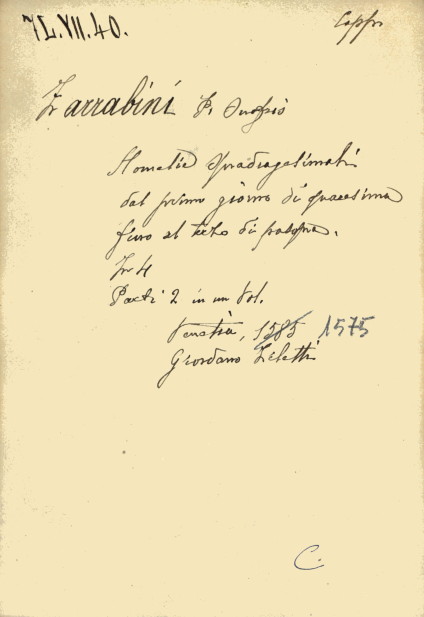 7L.VII.40.
Capps
Zarrabini P. Onofrio
Homelie Quadragesimali
dal primo giorno di quaresima
fino al terzo di pasqua.
In 4
Parti 2 in un Vol.
Venetia, 1585 1575
Giordano Ziletti
C.